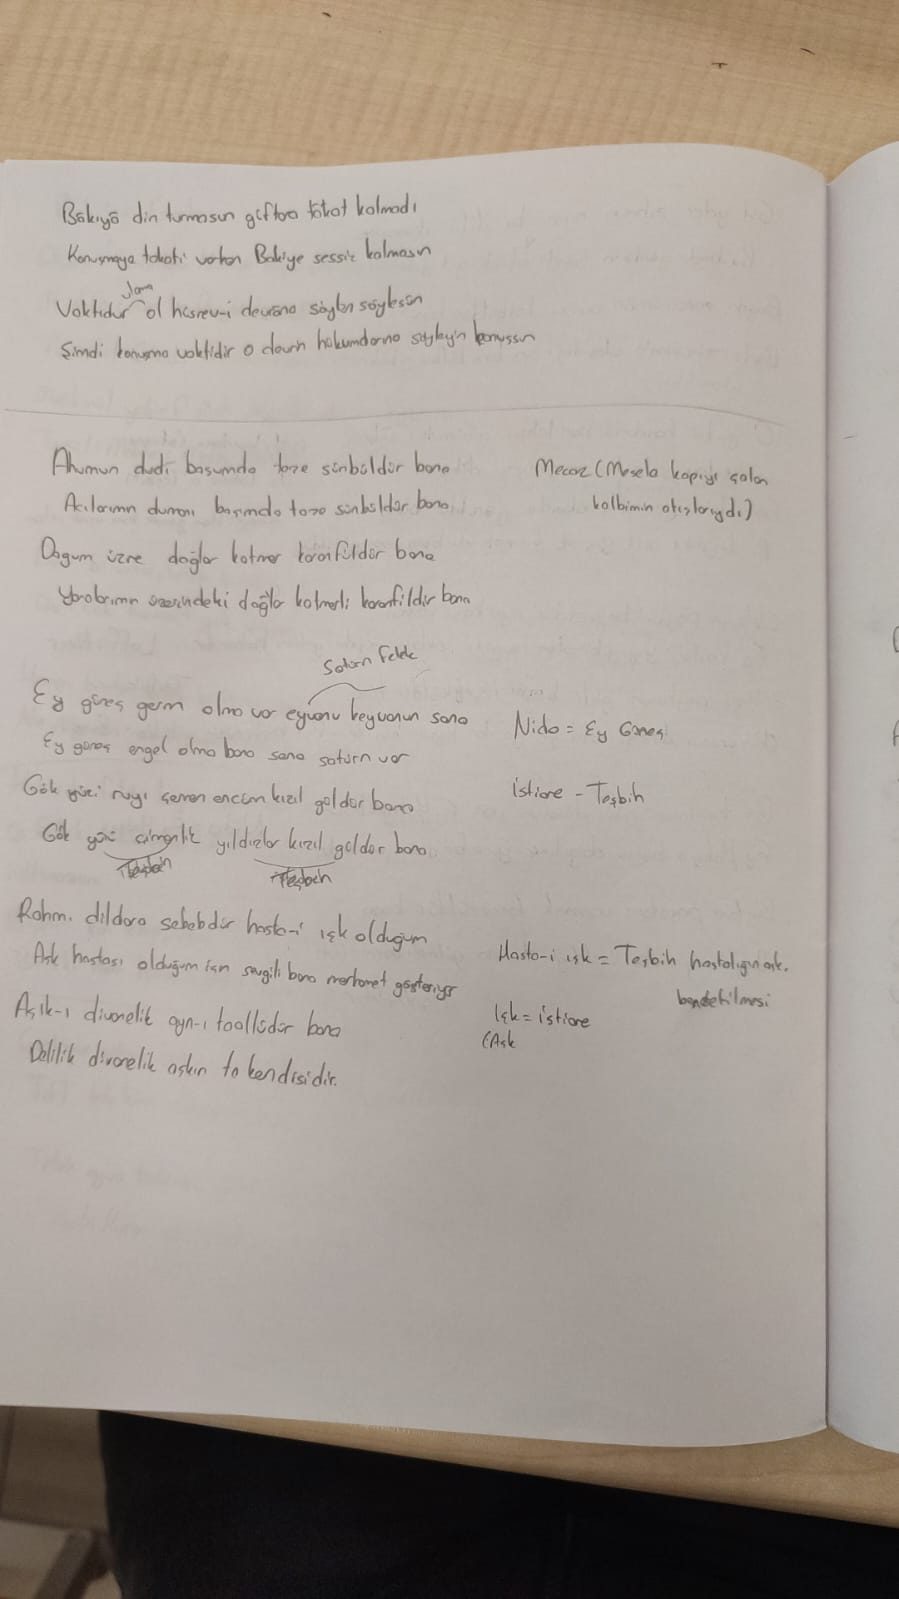 Bâkıyâ din turmasun güftara tâkat kalmadı
Konuşmaya takati varken Bakiye sessiz kalmasın
dem
Vaktidur ol hüsrev-i devrana söylen söylesün
Şimdi konuşma vaktidir o devrin hükümdarına söyleyin konuşsun
Ahumun dudı başumda taze sünbüldür bana
Mecaz (Mesela kapıyı çalan
Acılarımın dumanı başımda taze sünbüldür bana
kalbimin atışlarıydı)
Dagum üzre dağlar katmer karanfüldür bana
Yaralarımın üzerindeki dağlar katmerli karanfildir bana
Satürn Felek
Ey güneş germ olma var eyvanu keyvanun sana
Nida = Ey Güneş
Ey güneş engel olma bana sana satürn var
Gök yüzi ruyı çemen encüm kızıl güldür bana
istiare - Teşbih
Gök yüzü çimenlik yıldızlar kızıl güldür bana
Teşbih Teşbih
Rahm. dildara sebebdür hasta-i ışk olduğum
Hasta-i ışk = Teşbih hastalığın aşk.
Aşk hastası olduğum için sevgili bana merhamet gösteriyor
benzetilmesi
Aşık-ı divanelik ayn-ı taallüdür bana
Işk = istiare
(Aşk
Delilik divanelik aşkın ta kendisidir.